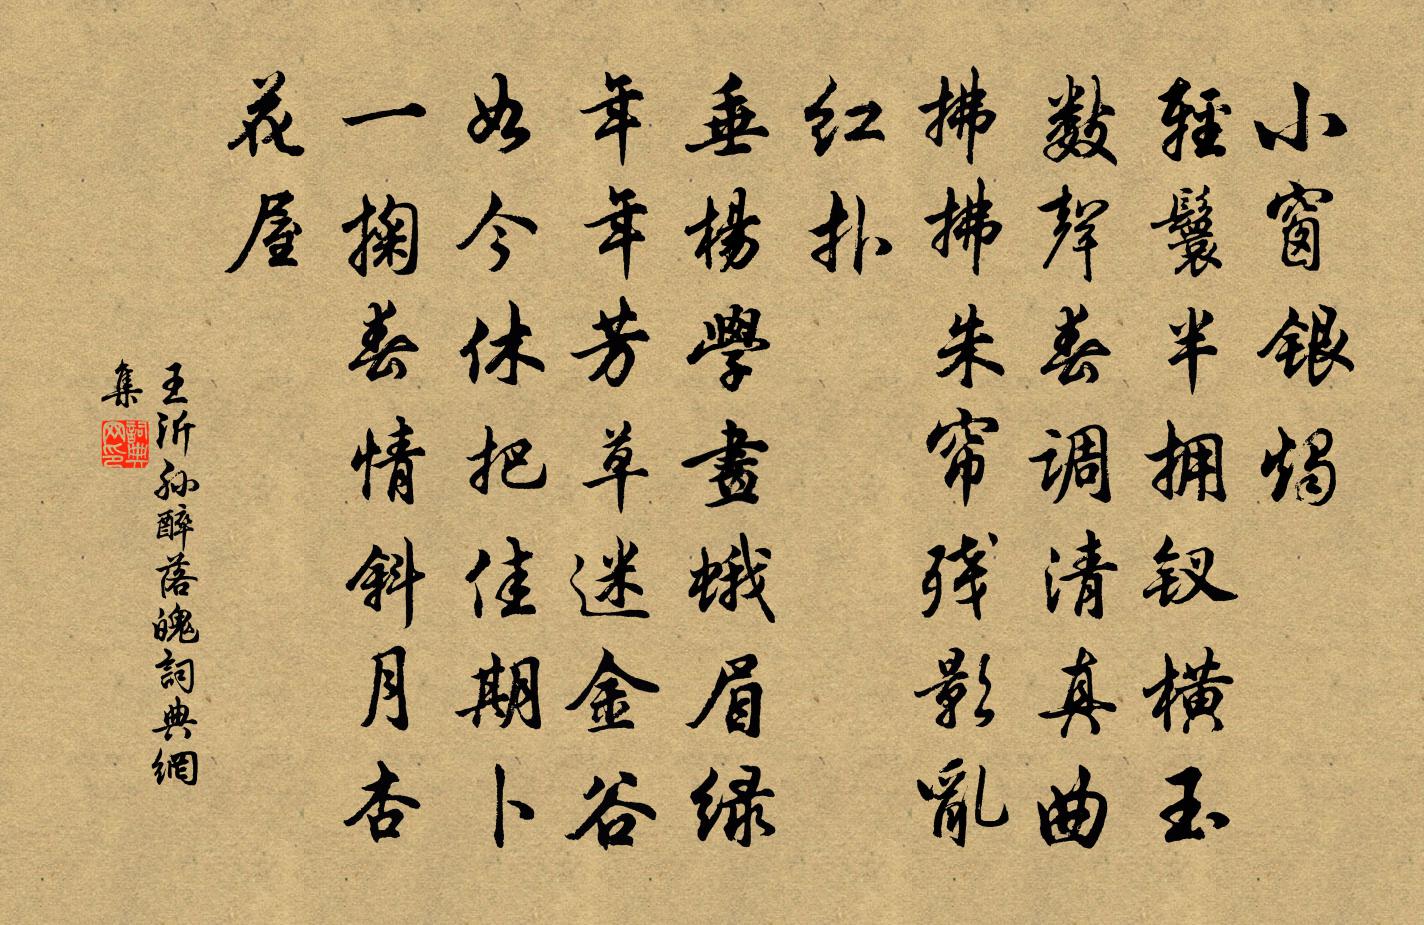 小窗银烛
輕鬟半拥钗横玉
数聲春调清真曲
拂拂朱帘残影亂
红扑
垂楊學畫蛾眉绿
年年芳草迷金谷
如今休把佳期卜
一掬春情斜月杏
花屋
王沂孙醉落魄詞典網
集
詞典
网印